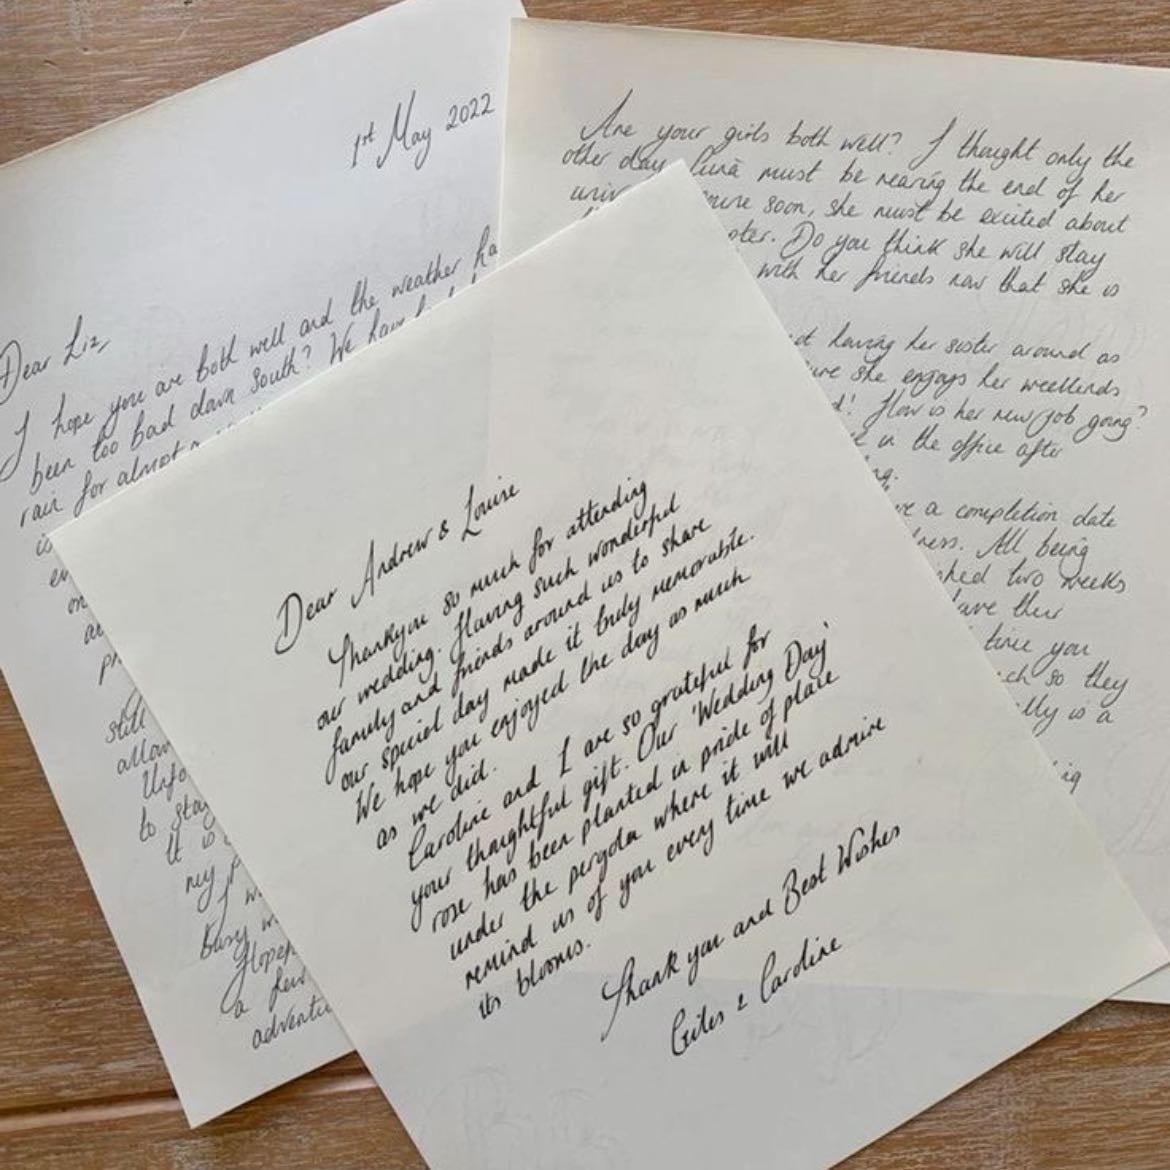 1st May 2022
Dear Liz,
I hope you are both well and the weather ha
been too bad down South? We have
rain for almost a
is
en
on
a
pr
still
allow
Unfo
to stay
It is
my p
I w
busy w
Hopef
a few
adventu
Are your girls both well? I thought only the
other day must be nearing the end of her
univ soon, she must be excited about
pter. Do you think she will stay
with her friends now that she is
ot having her sister around as
ure she enjoys her weekends
d! How is her new job going?
k in the office after
ng.
ve a completion date
ness. All being
shed two weeks
ave their
time you
ch so they
lly is a
ing
Dear Andrew & Louise
Thankyou so much for attending
our wedding. Having such wonderful
family and friends around us to share
our special day made it truly memorable.
We hope you enjoyed the day as much
as we did.
Caroline and I are so grateful for
your thoughtful gift. Our 'Wedding Day'
rose has been planted in pride of place
under the pergola where it will
remind us of you every time we admire
its blooms.
Thank you and Best Wishes
Giles & Caroline